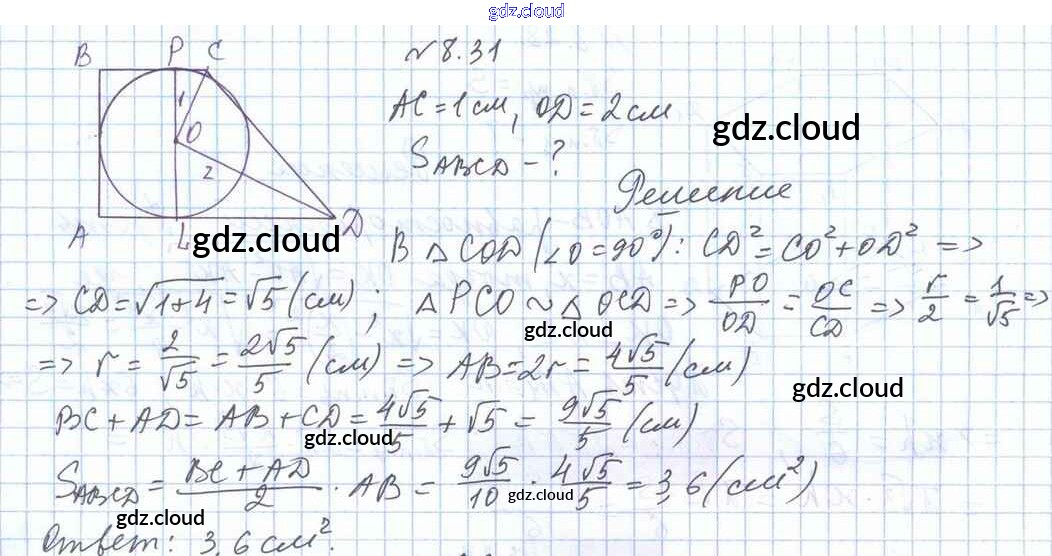 gdz.cloud
B P C
№ 8.31
1
AC = 1 см, OD = 2 см
gdz.cloud
O
2
S_ABCD - ?
Решение
A L D
gdz.cloud
В △ COD (∠O = 90°): CD² = CO² + OD² =>
=> CD = √(1+4) = √5 (см); △ PCO ~ △ OCD => PO/OD = OC/CD => r/2 = 1/√5 =>
gdz.cloud
=> r = 2/√5 = 2√5/5 (см) => AB = 2r = 4√5/5 (см)
gdz.cloud
BC + AD = AB + CD = 4√5/5 + √5 = 9√5/5 (см)
gdz.cloud
S_ABCD = (BC + AD)/2 · AB = 9√5/10 · 4√5/5 = 3,6 (см²)
gdz.cloud
gdz.cloud
Ответ: 3,6 см².